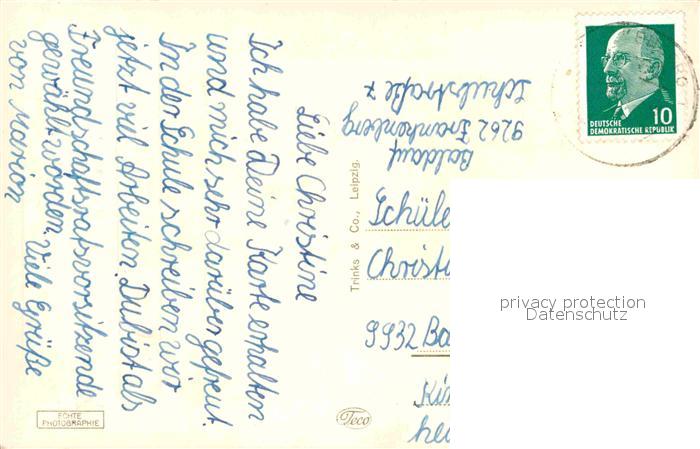 Liebe Christine
Ich habe Deine Karte erhalten
und mich sehr darüber gefreut.
In der Schule schreiben wir
jetzt viel Arbeiten. Du bist als
Freundschaftsratsvorsitzende
gewählt worden. Viele Grüße
von Marion
Baldauf
9262 Frankenberg
Schulstraße 7
Schüle
Christ
9932 Ba
Ki
he
Trinks & Co., Leipzig.
ECHTE
PHOTOGRAPHIE
Teco
10
DEUTSCHE
DEMOKRATISCHE REPUBLIK
privacy protection
Datenschutz